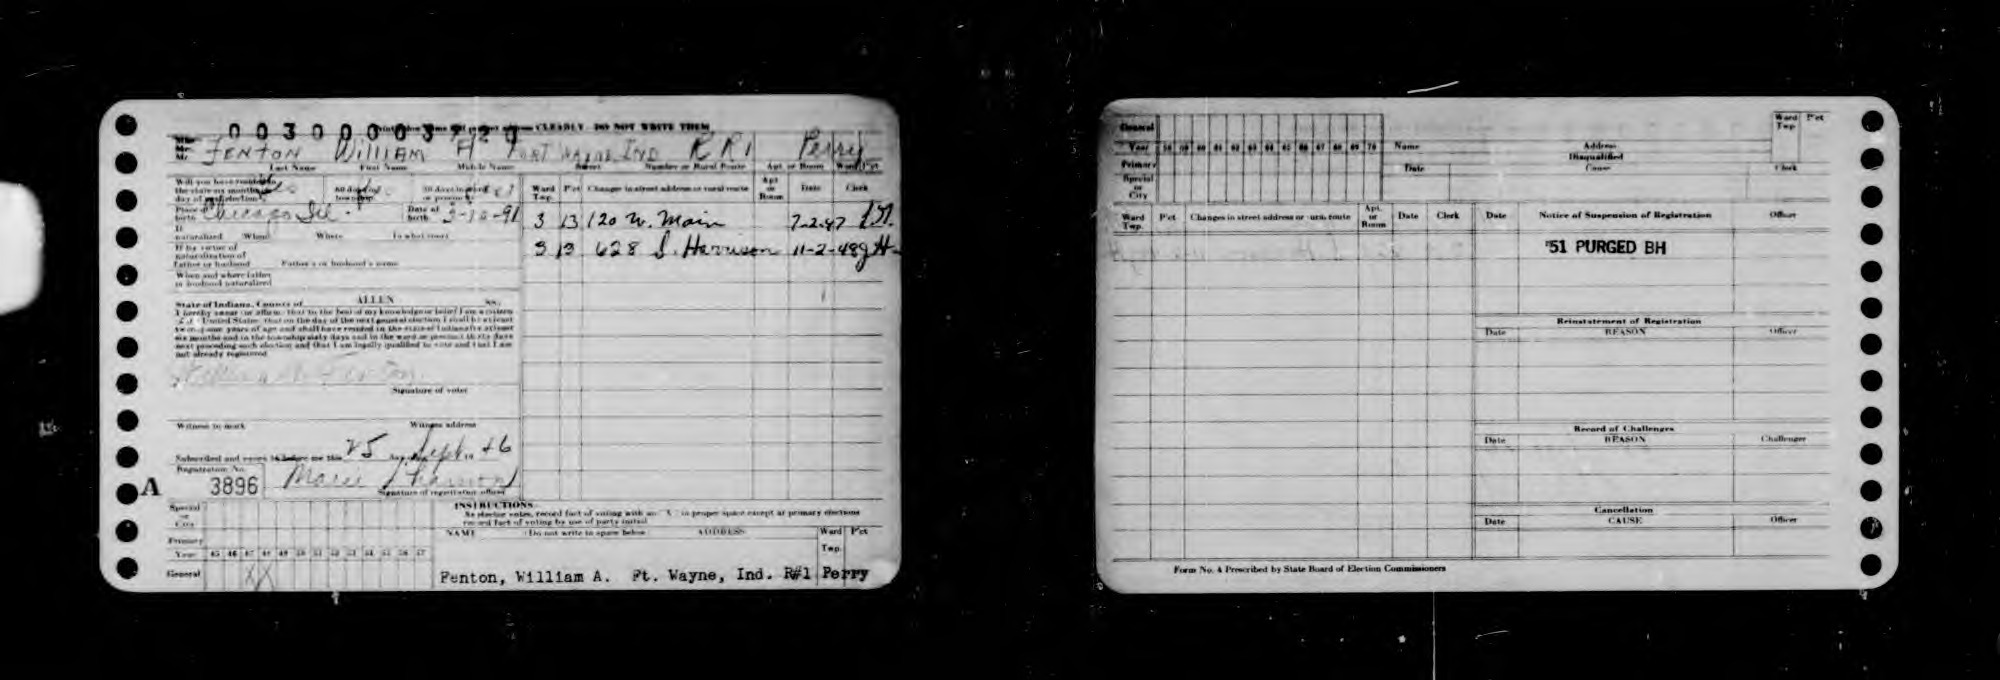 003000003720
CLEARLY - DO NOT WRITE THEM
Miss
Mrs.
Mr. FENTON WILLIAM A FORT WAYNE IND RR1 Perry
Last Name First Name Middle Name Street Number or Rural Route Apt. or Room Ward Pct
Will you have resided in the state six months 60 days in township 30 days in ward or precinct
day of next election?
Place of birth Chicago Ill. Date of birth
If naturalized When? Where In what court
If by virtue of naturalization of Father or husband Father's or husband's name
When and where father or husband naturalized
Ward Twp. Pct Changes in street address or rural route Apt. or Room Date Clerk
3 13 120 W. Main 7-2-47
3 13 628 S. Harrison 11-2-48
State of Indiana, County of ALLEN ss.
I hereby swear (or affirm) that to the best of my knowledge or belief I am a citizen
of United States; that on the day of the next general election I shall be at least
twenty-one years of age and shall have resided in the state of Indiana for at least
six months and in the township sixty days and in the ward or precinct thirty days
next preceding such election and that I am legally qualified to vote and that I am
not already registered.
William A Fenton
Signature of voter
Witness to mark Witness address
Subscribed and sworn to before me this 25 day of Sept 46
Registration No.
A 3896 Marie
Signature of registration officer
Special or City
Primary
Year 45 46 47 48 49 50 51 52 53 54 55 56 57
General X X
INSTRUCTIONS
As elector votes, record fact of voting with an "X" in proper space except at primary elections
record fact of voting by use of party initial
NAME (Do not write in space below) ADDRESS Ward Twp. Pct
Fenton, William A. Ft. Wayne, Ind. R#1 Perry
General
Year 58 59 60 61 62 63 64 65 66 67 68 69 70
Primary
Special or City
Name Address Ward Twp. Pct
Disqualified
Date Cause Clerk
Ward Twp. Pct Changes in street address or rural route Apt. or Room Date Clerk
Date Notice of Suspension of Registration Officer
'51 PURGED BH
Reinstatement of Registration
Date REASON Officer
Record of Challenges
Date REASON Challenger
Cancellation
Date CAUSE Officer
Form No. 4 Prescribed by State Board of Election Commissioners